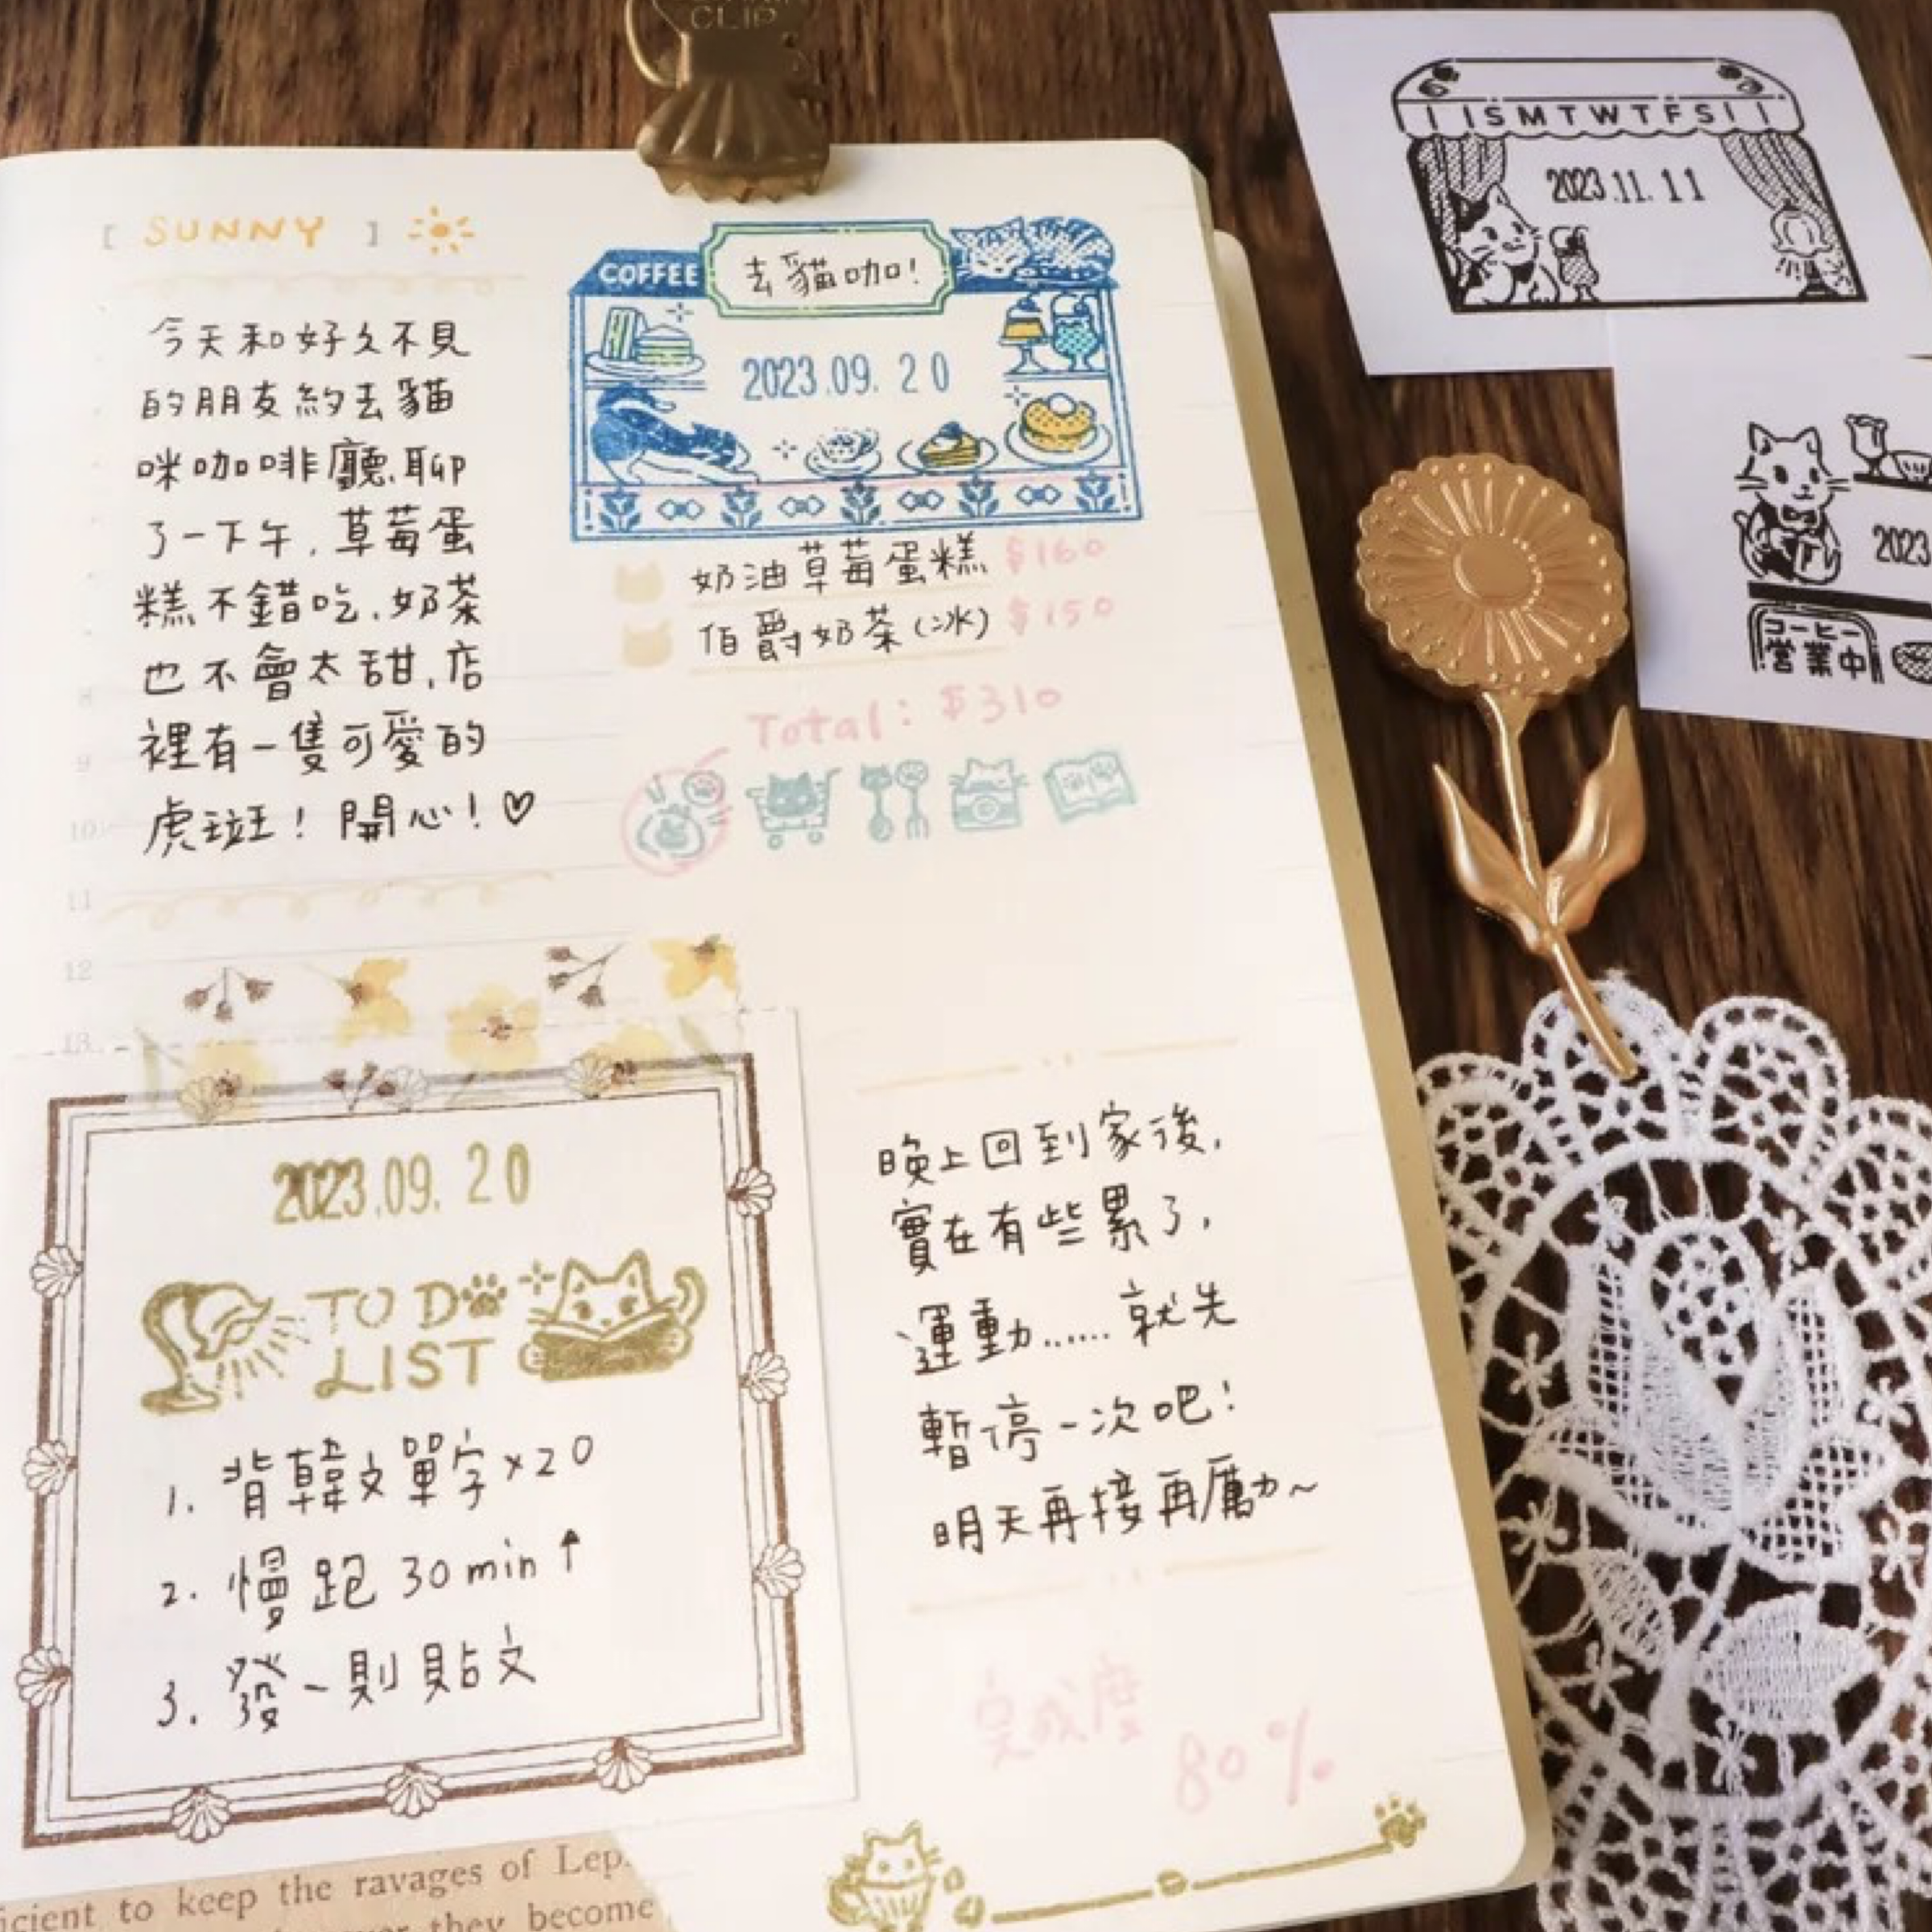 CLIP
[ SUNNY ]
今天和好久不見
的朋友約去貓
咪咖啡廳,聊
了一下午,草莓蛋
糕不錯吃,奶茶
也不會太甜,店
裡有一隻可愛的
虎斑!開心!♡
COFFEE
去貓咖!
2023.09.20
奶油草莓蛋糕 $160
伯爵奶茶(冰) $150
Total: $310
8
9
10
11
12
13
2023.09.20
TO DO
LIST
1. 背韓文單字×20
2. 慢跑 30min↑
3. 發一則貼文
晚上回到家後,
實在有些累了,
運動......就先
暫停一次吧!
明天再接再厲~
完成度
80%
icient to keep the ravages of Lep
they become
SMTWTFS
2023.11.11
2023
コーヒー
営業中